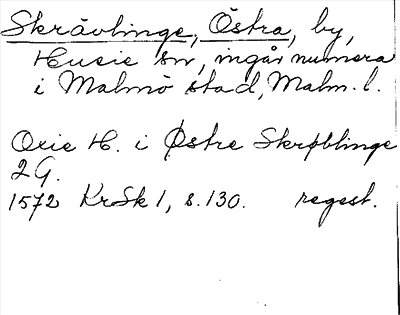 Skrävlinge, Östra, by,
Husie sn, ingår numera
i Malmö stad, Malm. l.
Oxie H. i Østre Skrøblinge
2 G.
1572 KrSk 1, s. 130. regest.